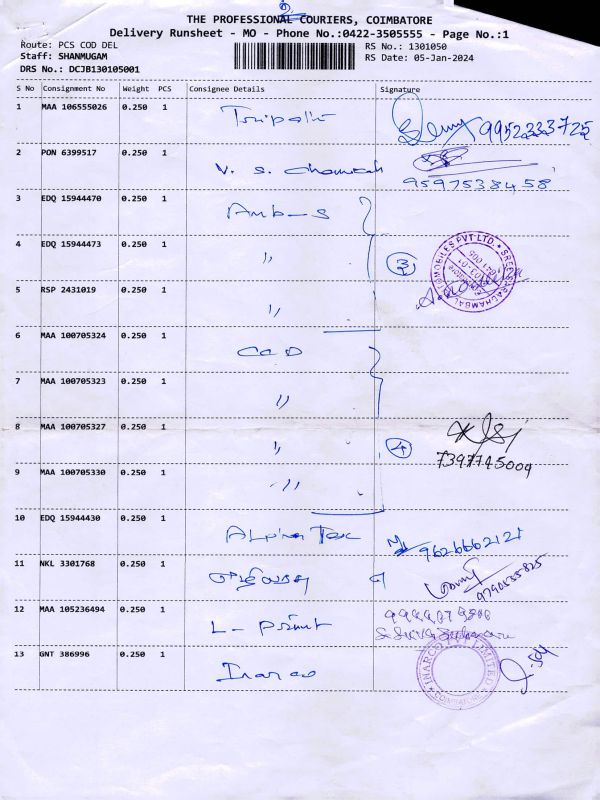 THE PROFESSIONAL COURIERS, COIMBATORE
Delivery Runsheet - MO - Phone No.:0422-3505555 - Page No.:1
Route: PCS COD DEL
RS No.: 1301050
Staff: SHANMUGAM
RS Date: 05-Jan-2024
DRS No.: DCJB130105001
S No Consignment No Weight PCS Consignee Details Signature
1 MAA 106555026 0.250 1 9952333725
2 PON 6399517 0.250 1 V. S.
9597538458
3 EDQ 15944470 0.250 1
4 EDQ 15944473 0.250 1 〃 3
5 RSP 2431019 0.250 1 〃
6 MAA 100705324 0.250 1
7 MAA 100705323 0.250 1 〃
8 MAA 100705327 0.250 1 〃 4
7397745009
9 MAA 100705330 0.250 1 〃
10 EDQ 15944430 0.250 1 Alpha 9626662121
11 NKL 3301768 0.250 1 9790535825
12 MAA 105236494 0.250 1 L- Print
13 GNT 386996 0.250 1 Inarco
INARCO LIMITED
COIMBATORE